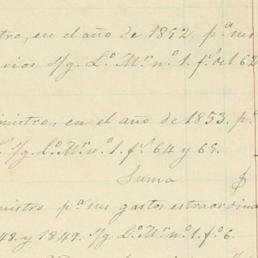 tro, en el año de 1852. pª sus
arios S/g. Lº Mrº nº 1. fº del 62
inistro, en el año de 1853. pª
S/g. Lº Mrº nº 1. fº 64 y 65.
Suma $
nistro pª sus gastos estraordina
48. y 1849. S/g Lº Mrº nº 1. fº 6.